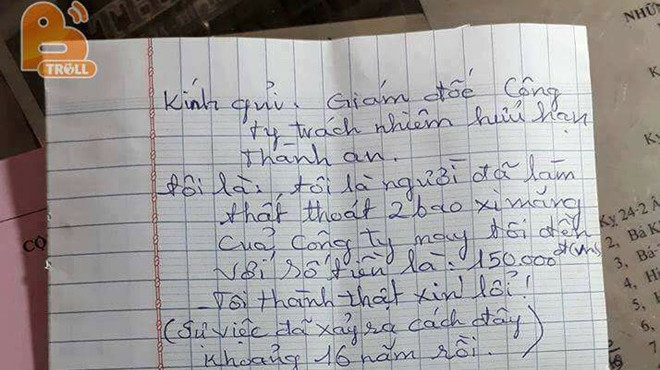 B
TROLL
Kính gửi. Giám đốc Công
ty trách nhiệm hữu hạn
Thành an.
tôi là:, tôi là người đã làm
thất thoát 2 bao xi măng
của Công ty nay tôi đền
với số tiền là: 150.000đ(vnđ)
Tôi thành thật xin lỗi!
(Sự việc đã xảy ra cách đây
khoảng 16 năm rồi.)
NHỮN
K
CO
Kỳ 24-2 Â
2, Bà K
3, Bà
4, H
5,
6,
7